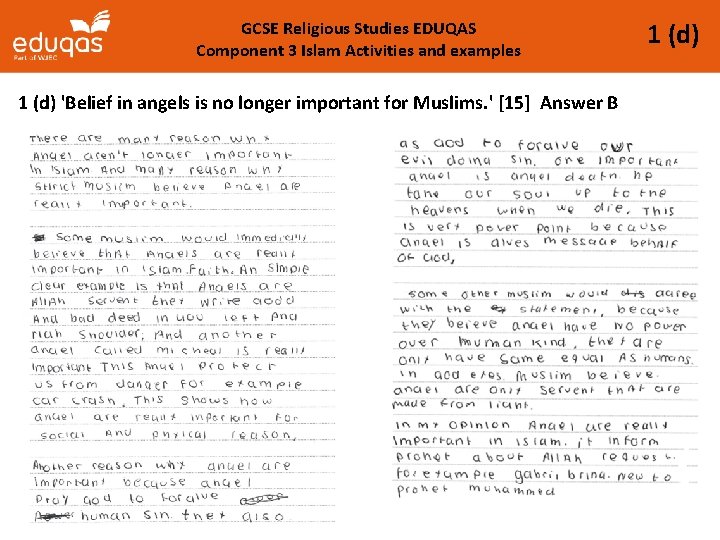 eduqas
Part of WJEC
GCSE Religious Studies EDUQAS
Component 3 Islam Activities and examples
1 (d)
1 (d) 'Belief in angels is no longer important for Muslims. ' [15] Answer B
There are many reason why
Angel aren't longer important
In Islam And many reason why
strict muslim believe Angel are
realy important.
Some muslim would immedictly
believe that Angels are realy
important in Islam Faith. An simple
clear example is that Angels are
Allah servent they write good
And bad deed in you left And
righ shoulder, And another
angel called micheal is really
important This Angel protect
us from danger for example
car crash, This shows how
angel are realy important for
social And phyical reason.
Another reason why angel are
important because angel
pray god to forgive
human sin. they also
as God to forgive owr
evil doing sin. one important
angel is angel death he
take our soul up to the
heavens when we die. This
is very power point because
angel is gives message behalf
of God,
some other muslim would agree
with the statement, because
they believe angel have no power
over human kind, they are
only have same equal As humans.
in god eyes muslim believe
angel are only servent that are
made from light.
in my opinion Angel are really
important in islam. it inform
prohet about Allah reques
for example gabril bring new to
prohet muhammed